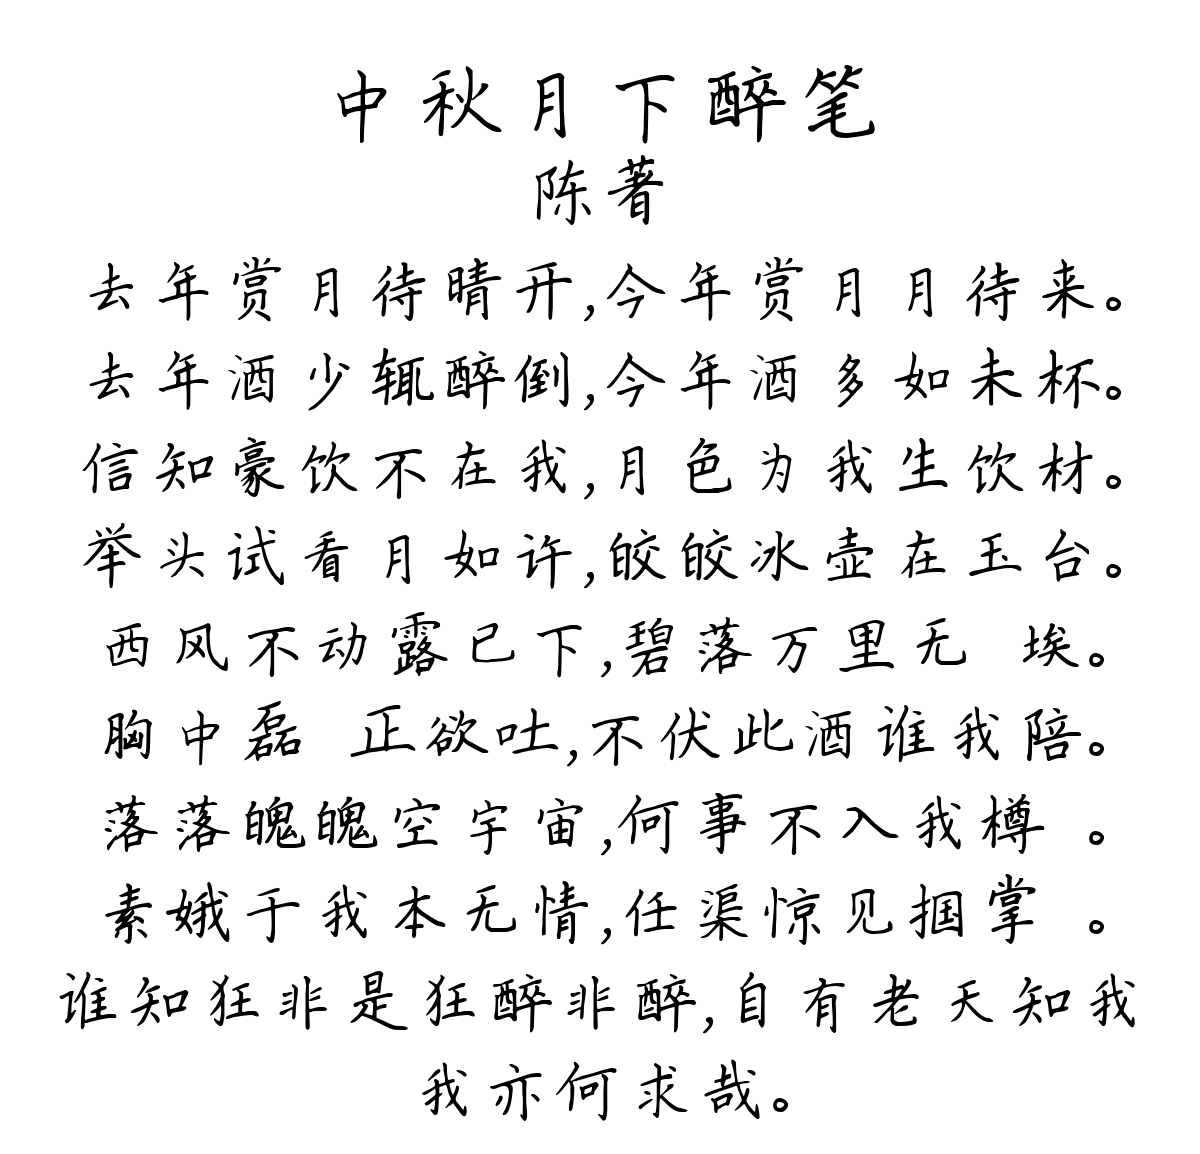 中秋月下醉笔
陈著
去年赏月待晴开,今年赏月月待来。
去年酒少辄醉倒,今年酒多如未杯。
信知豪饮不在我,月色为我生饮材。
举头试看月如许,皎皎冰壶在玉台。
西风不动露已下,碧落万里无 埃。
胸中磊 正欲吐,不伏此酒谁我陪。
落落魄魄空宇宙,何事不入我樽 。
素娥于我本无情,任渠惊见掴掌 。
谁知狂非是狂醉非醉,自有老天知我
我亦何求哉。